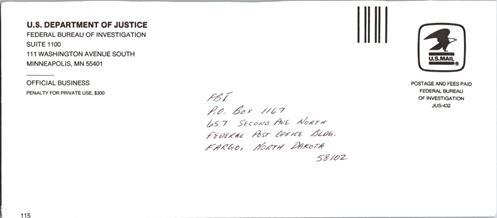 U.S. DEPARTMENT OF JUSTICE
FEDERAL BUREAU OF INVESTIGATION
SUITE 1100
111 WASHINGTON AVENUE SOUTH
MINNEAPOLIS, MN 55401
OFFICIAL BUSINESS
PENALTY FOR PRIVATE USE, $300
U.S.MAIL
POSTAGE AND FEES PAID
FEDERAL BUREAU
OF INVESTIGATION
JUS-432
FBI
P.O. BOX 1167
657 SECOND AVE NORTH
FEDERAL POST OFFICE BLDG.
FARGO, NORTH DAKOTA
58102
115